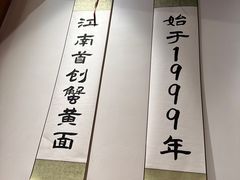 江南首创蟹黄面
始于1999年